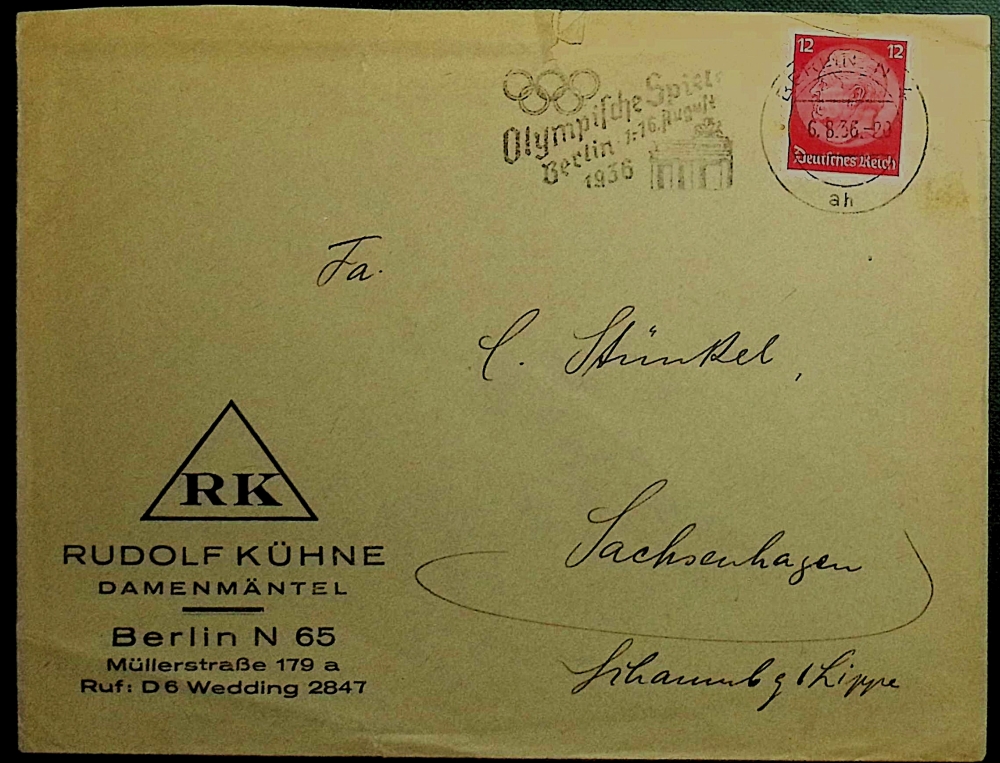 Olympische Spiele
Berlin 1.-16. August
1936
BERLIN N
12 12
6.8.36.-20
Deutsches Reich
ah
Fa.
C. Stünkel,
Sachsenhagen
Schaumbg/Lippe
RK
RUDOLF KÜHNE
DAMENMÄNTEL
Berlin N 65
Müllerstraße 179 a
Ruf: D6 Wedding 2847